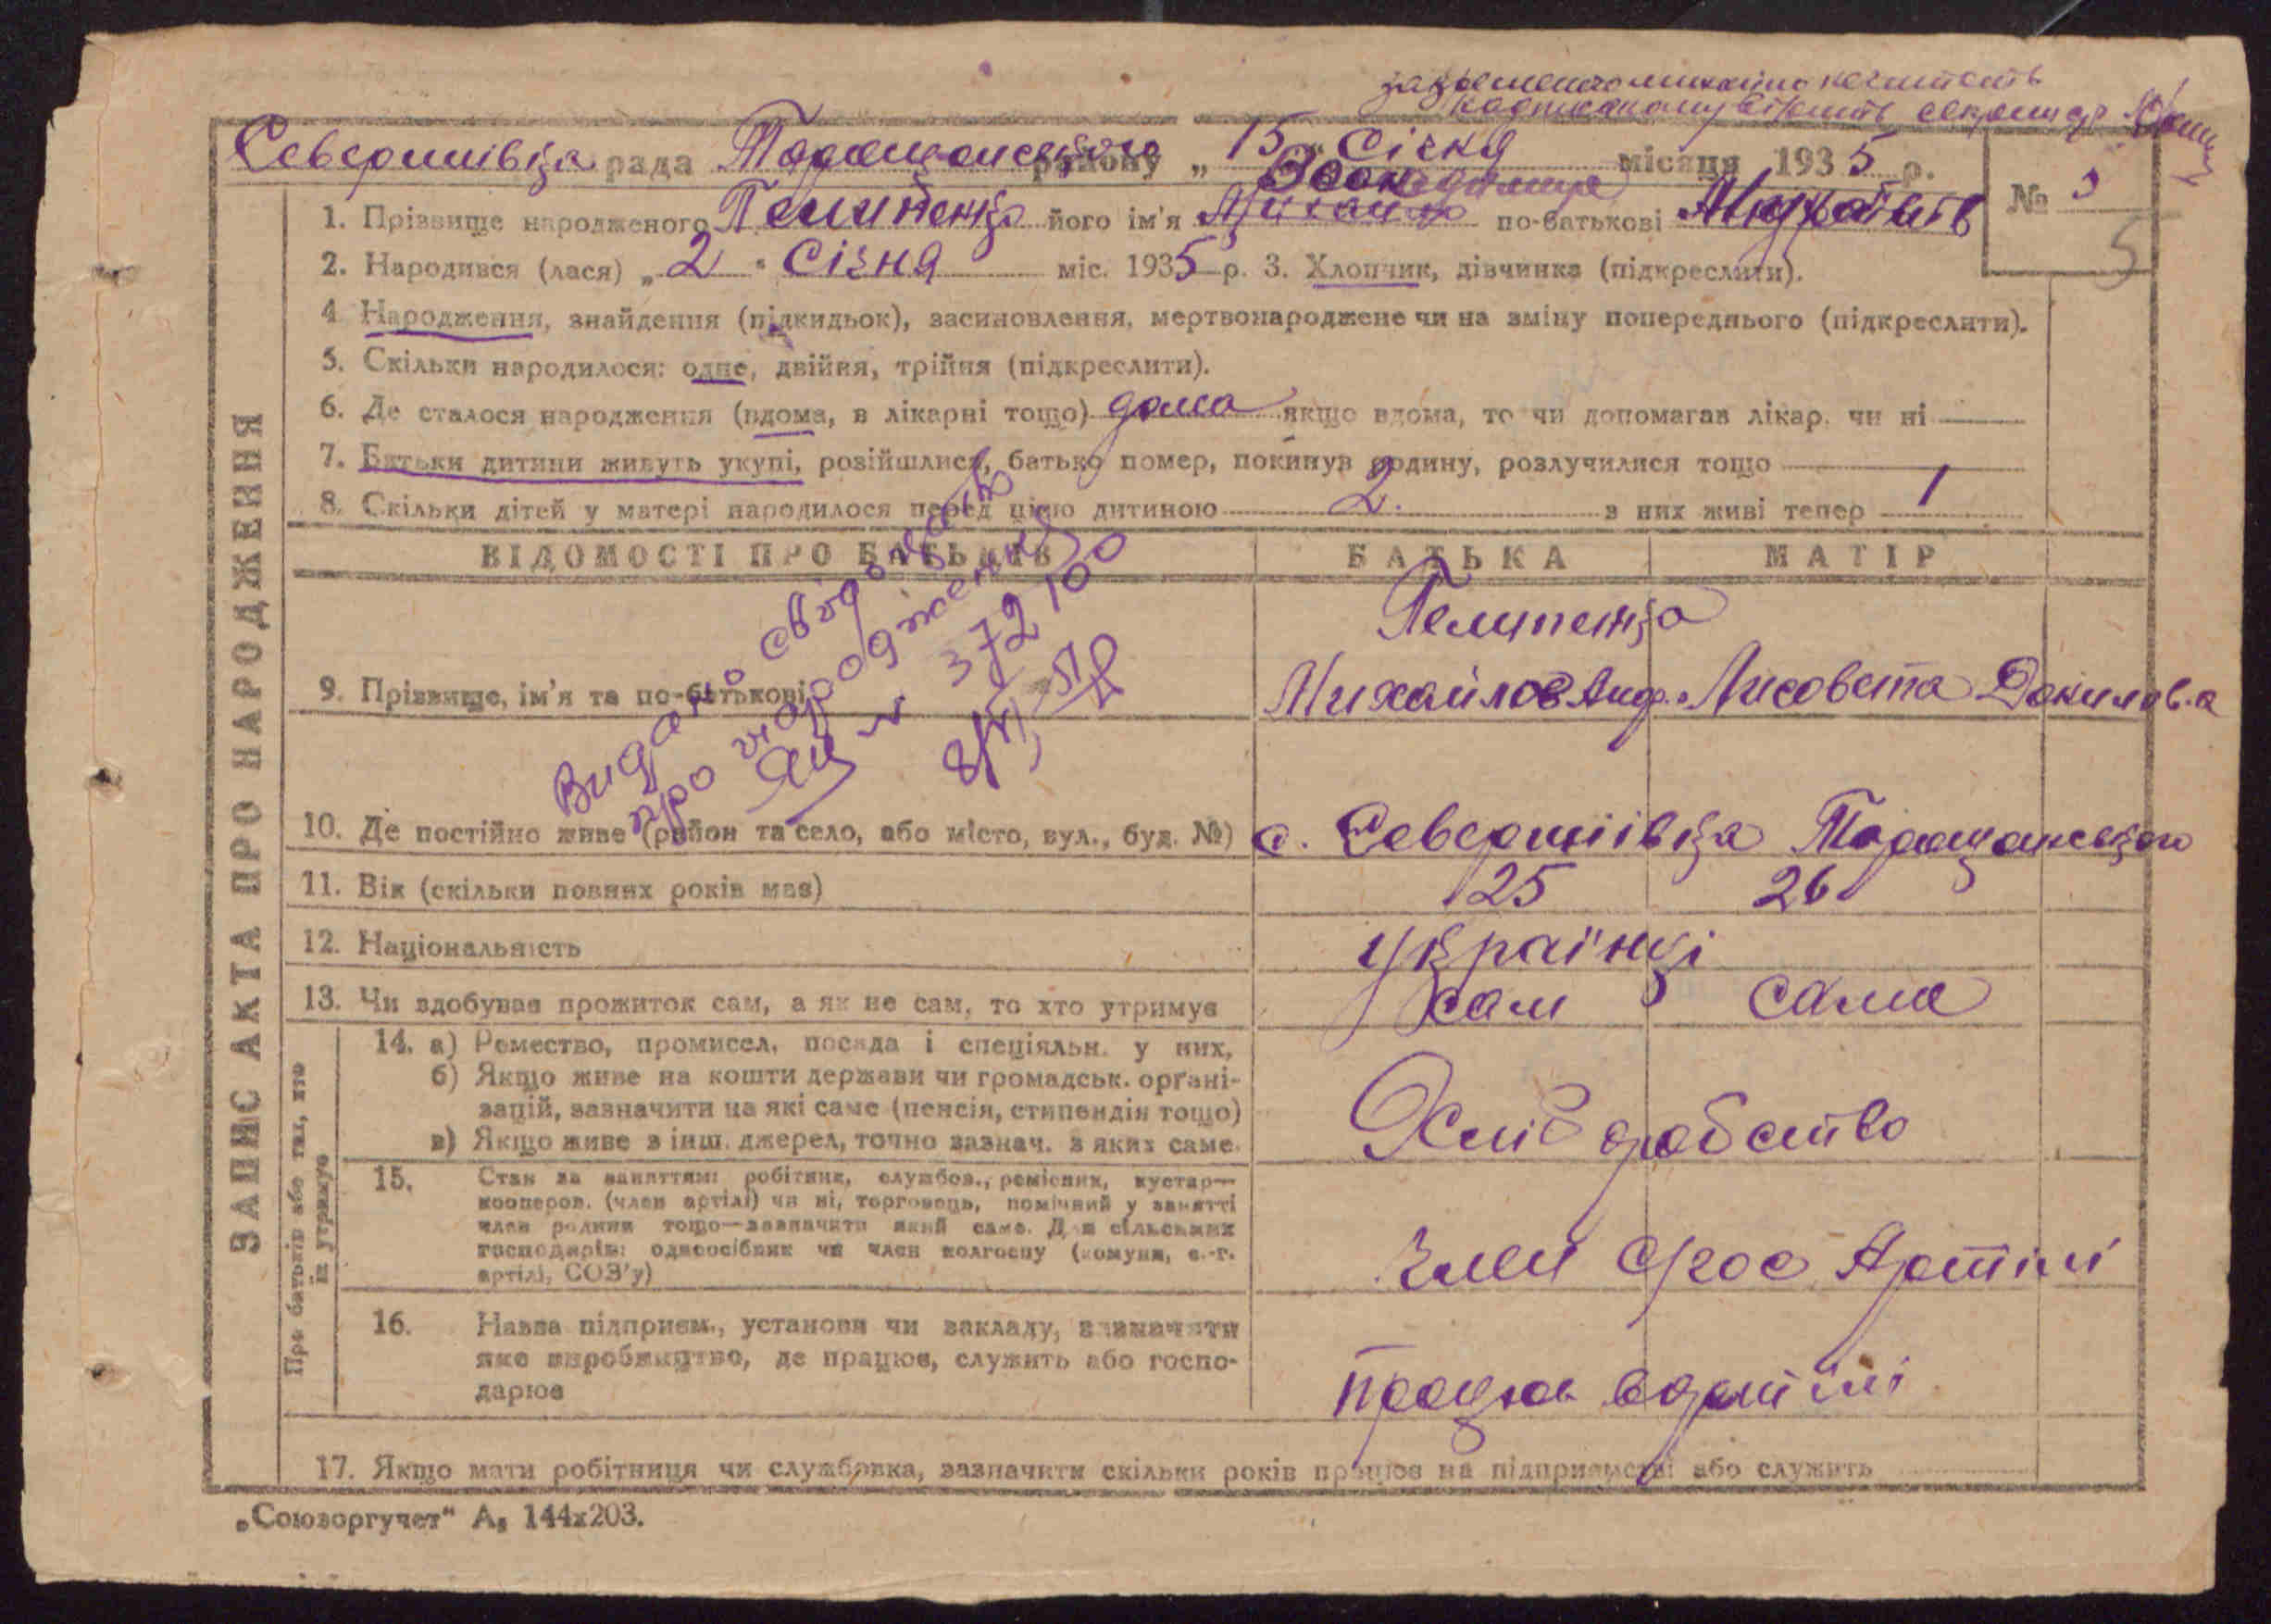 закреслено михайло не читать
надписаному вірить секретар
Северинівка рада Таращанського району „ 15 " Січня місяця 1935 р.
№ 5
5
1. Прізвище народженого Пелипенко його ім'я Михайло по-батькові
2. Народився (лася) „ 2 " Січня міс. 1935 р. 3. Хлопчик, дівчинка (підкреслити).
4 Народження, знайдення (підкидьок), засиновлення, мертвонароджене чи на зміну попереднього (підкреслити).
5. Скільки народилося: одне, двійня, трійня (підкреслити).
6. Де сталося народження (вдома, в лікарні тощо) дома якщо вдома, то чи допомагав лікар, чи ні
7. Батьки дитини живуть укупі, розійшлися, батько помер, покинув родину, розлучилися тощо
8. Скільки дітей у матері народилося перед цією дитиною 2. з них живі тепер 1
ВІДОМОСТІ ПРО БАТЬКІВ БАТЬКА МАТІР
Пелипенко
9. Прізвище, ім'я та по-батькові Михайло Анд. Лисовета Данилов.а
Видано свідоцтво
про народження
ЯЦ № 372100
10. Де постійно живе (район та село, або місто, вул., буд. №) с. Северинівка Таращанського
11. Вік (скільки повних років має) 25 26
12. Національність українці
13. Чи здобуває прожиток сам, а як не сам, то хто утримує сам сама
ЗАПИС АКТА ПРО НАРОДЖЕННЯ
Про батьків або тих, хто
їх утримує
14. а) Ремество, промисел, посада і спеціяльн. у них,
б) Якщо живе на кошти держави чи громадськ. орґані-
зацій, зазначити на які саме (пенсія, стипендія тощо)
в) Якщо живе з інш. джерел, точно зазнач. з яких саме.
Хліборобство
15. Стан за заняттям: робітник, службов., ремісник, кустар—
кооперов. (член артілі) чи ні, торговець, помічний у занятті
член родини тощо—зазначити який саме. Для сільських
господарів: одноосібник чи член колгоспу (комуни, с.-г.
артілі, СОЗ'у)
Член Артілі
16. Назва підприєм., установи чи закладу, зазначити
яке виробництво, де працює, служить або госпо-
дарює
працює в артілі
17. Якщо мати робітниця чи службовка, зазначити скільки років працює на підприємстві або служить
„Союзоргучет" А₅ 144х203.